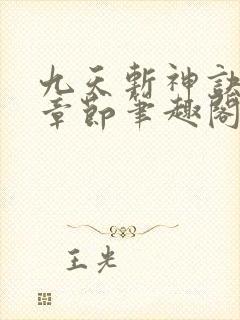 九天斩神訣
章節筆趣閣
王光